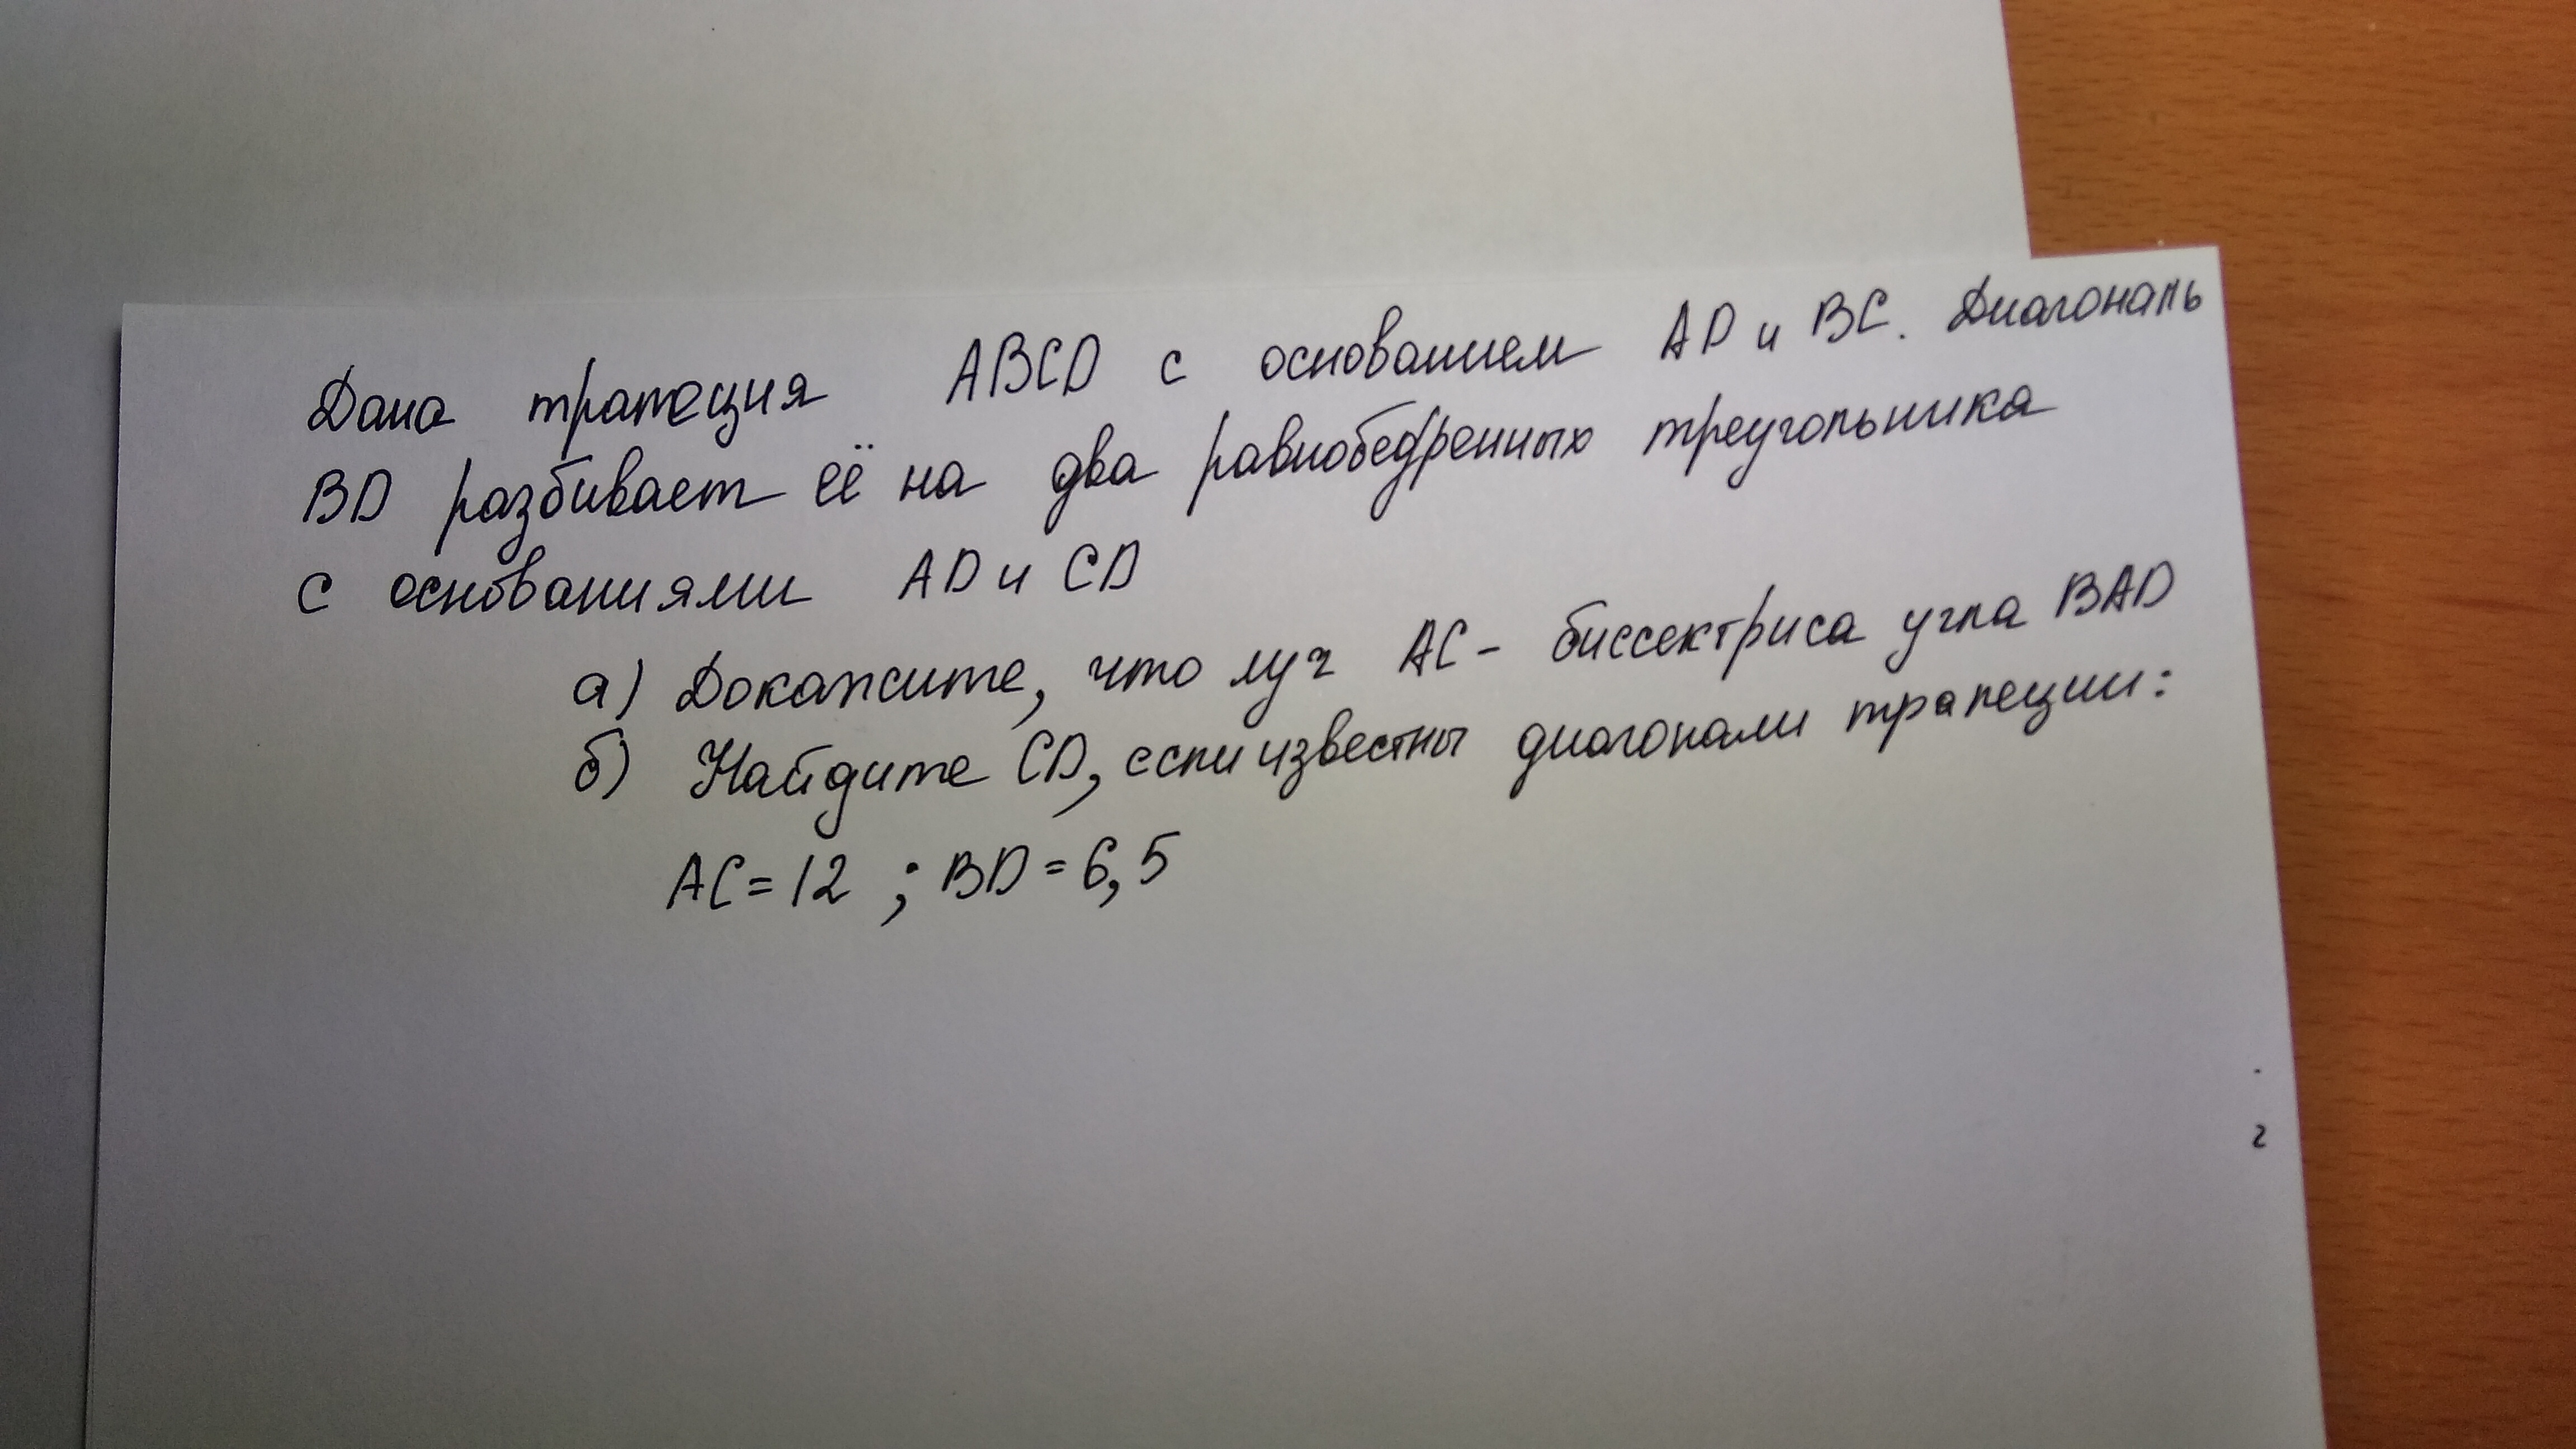 Дана трапеция ABCD с основанием AD и BC. Диагональ
BD разбивает её на два равнобедренных треугольника
с основаниями AD и CD
а) Докажите, что луч AC - биссектриса угла BAD
б) Найдите CD, если известны диагонали трапеции:
AC = 12 ; BD = 6,5